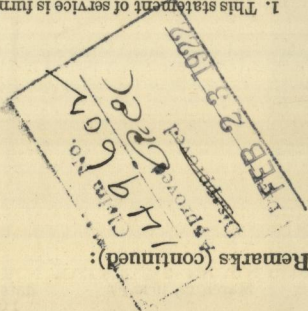 Remarks (continued):
Claim No.
Approved
Disapproved
FEB 23 1922
1. This statement of service is furn